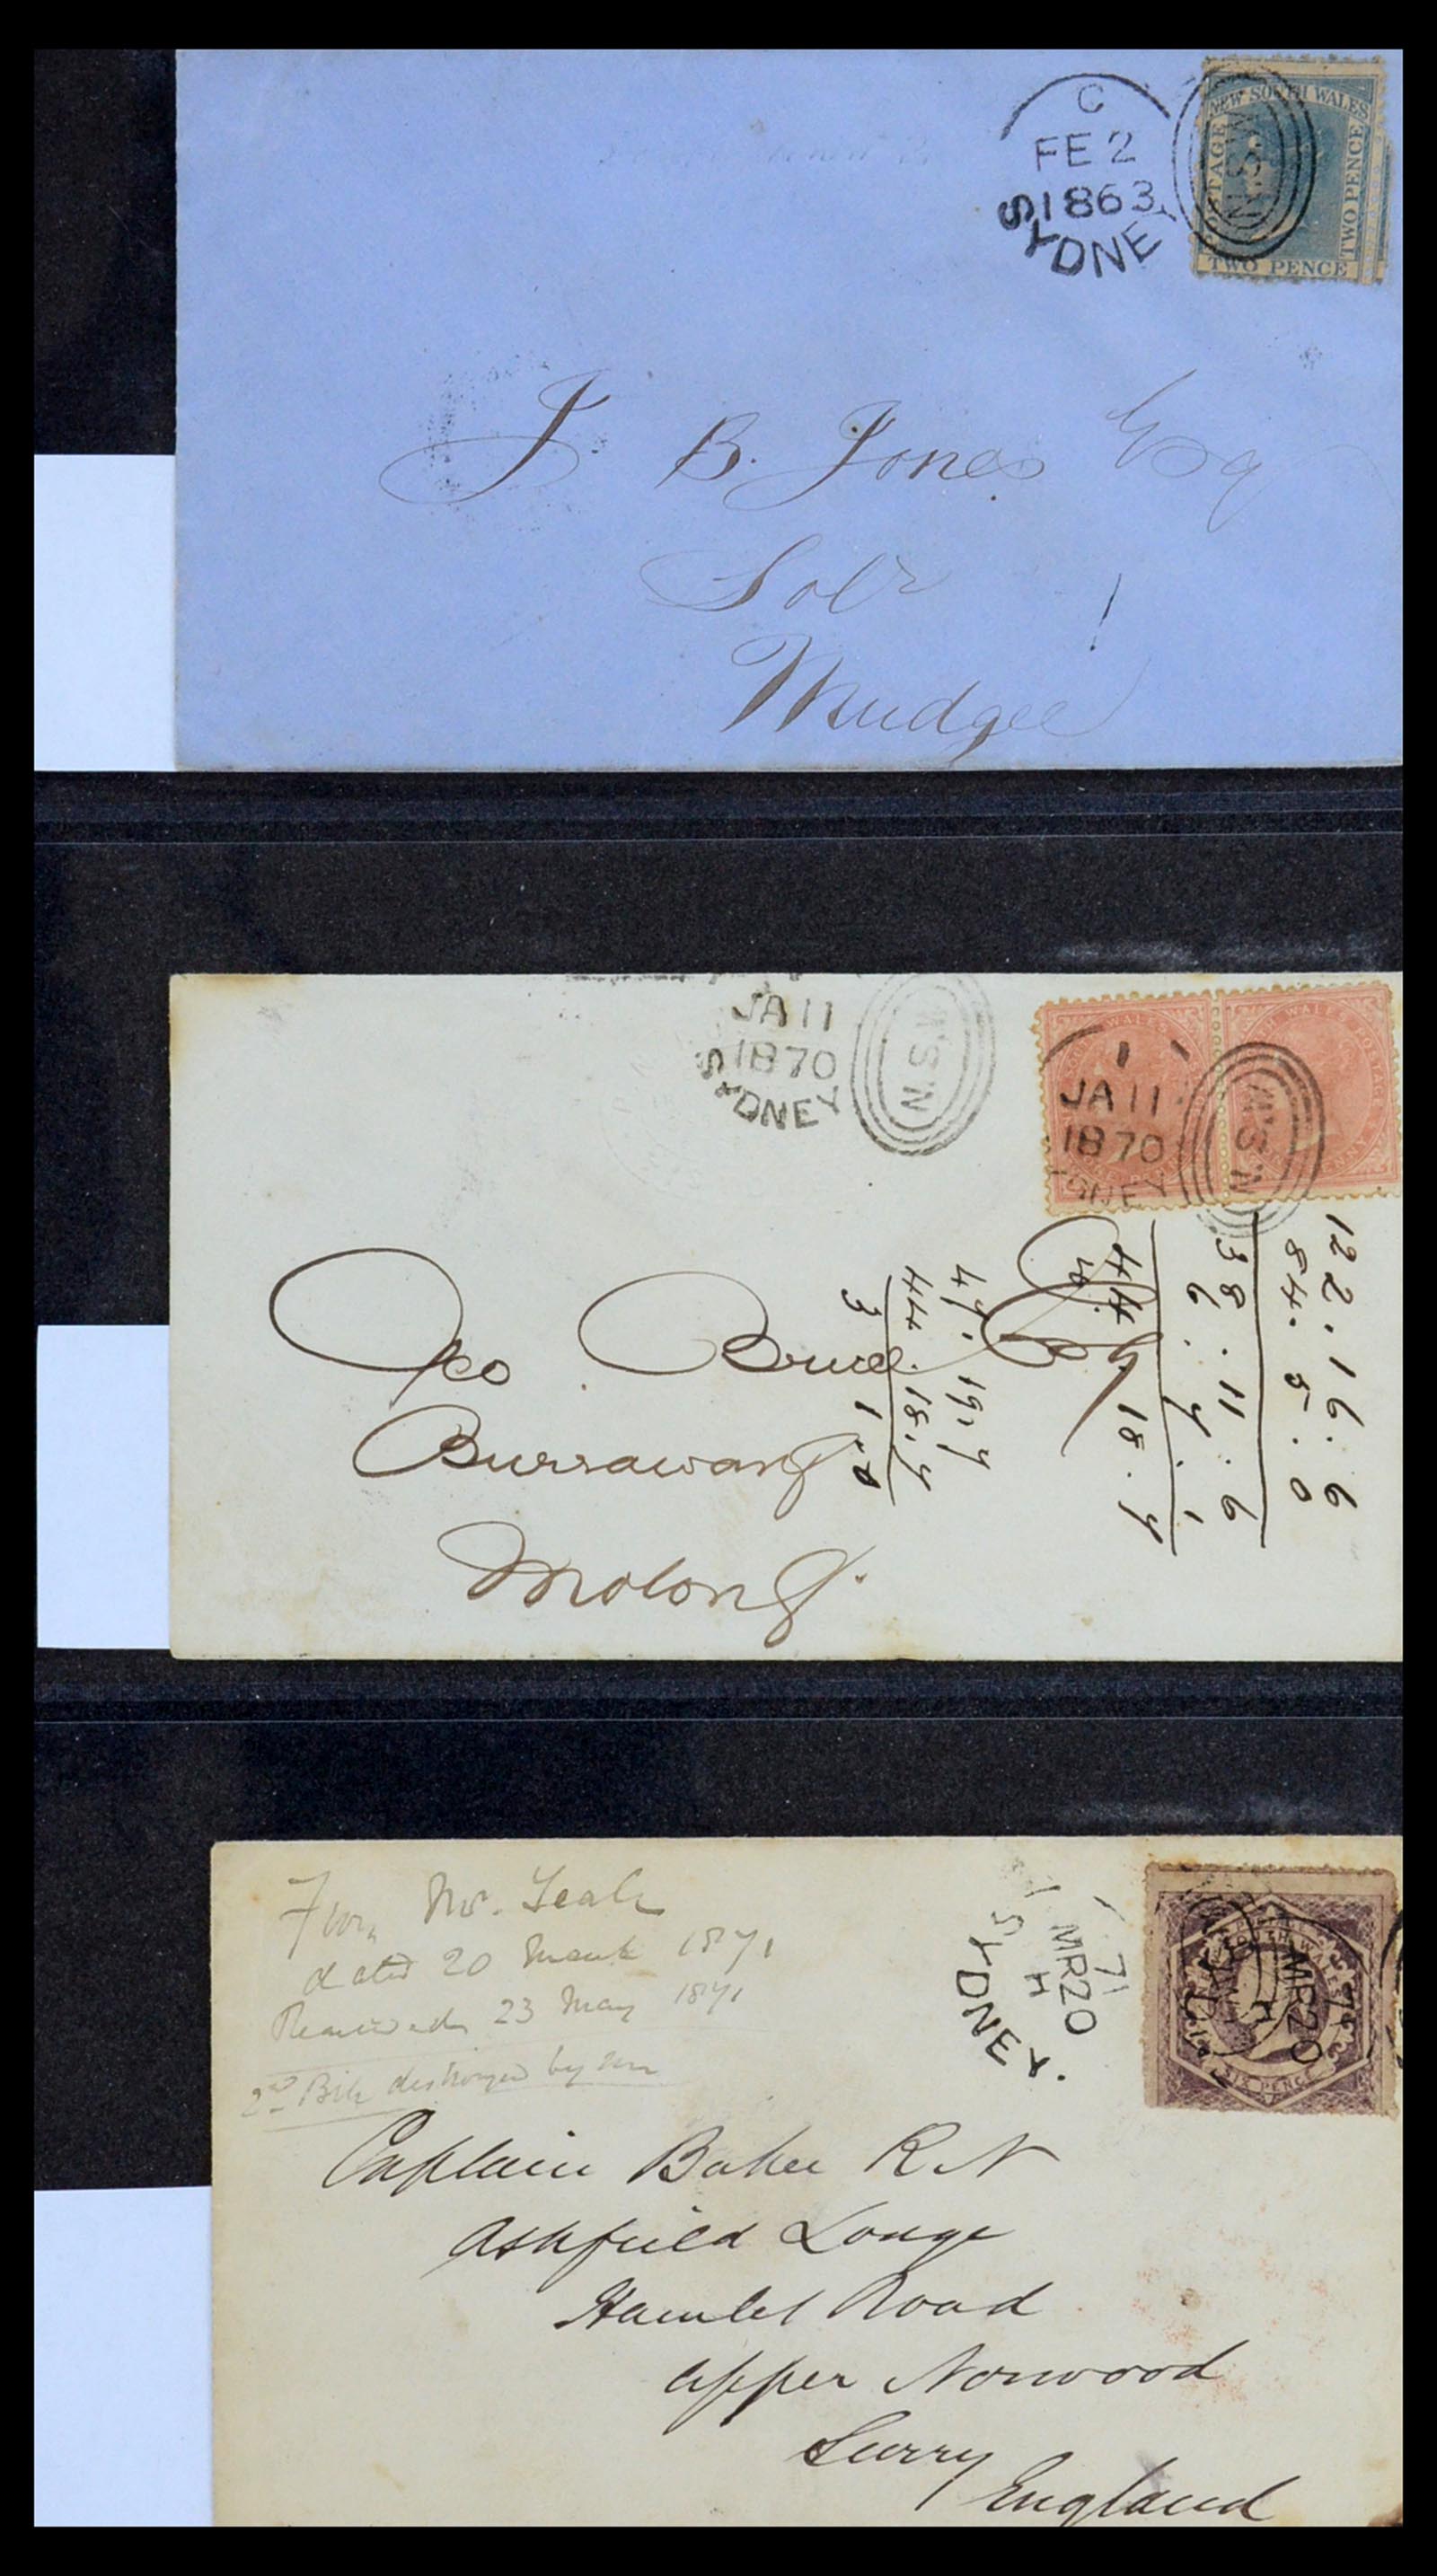 C
FE 2
1863
SYDNEY
NEW SOUTH WALES
POSTAGE
TWO PENCE
TWO PENCE
N.S.W
J. B. Jones Esq
Solr
Mudgee
JA 11
1870
SYDNEY
N.S.W
1
JA 11
1870
N.S.W
WALES
WALES POSTAGE
Geo Bruce
Burrawang
Molong
122.16.6
84.5.0
38.11.6
6.7.1
44.18.7
47.19.7
44.18.7
3 1.0
From Mr.
dated 20 March 1871
Received 23 May 1871
2nd Bill destroyed by me
71
MR20
H
SYDNEY.
MR20
H
SIX PENCE
Captain Baker R N
Ashfield Lodge
Hamlet Road
Upper Norwood
Surry
England